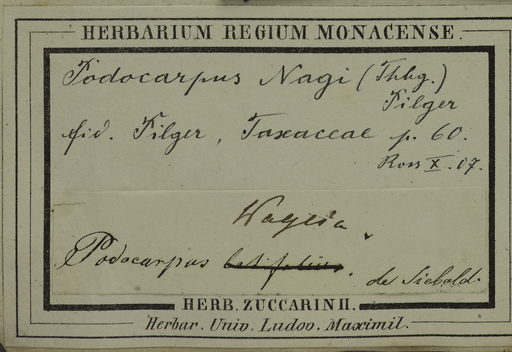 HERBARIUM REGIUM MONACENSE.
Podocarpus Nagi (Thbg.)
Pilger
fid. Pilger, Taxaceae p. 60.
Ross X. 07.
Nageia
Podocarpus latifolius.
de Siebold.
HERB. ZUCCARINII.
Herbar. Univ. Ludov. Maximil.